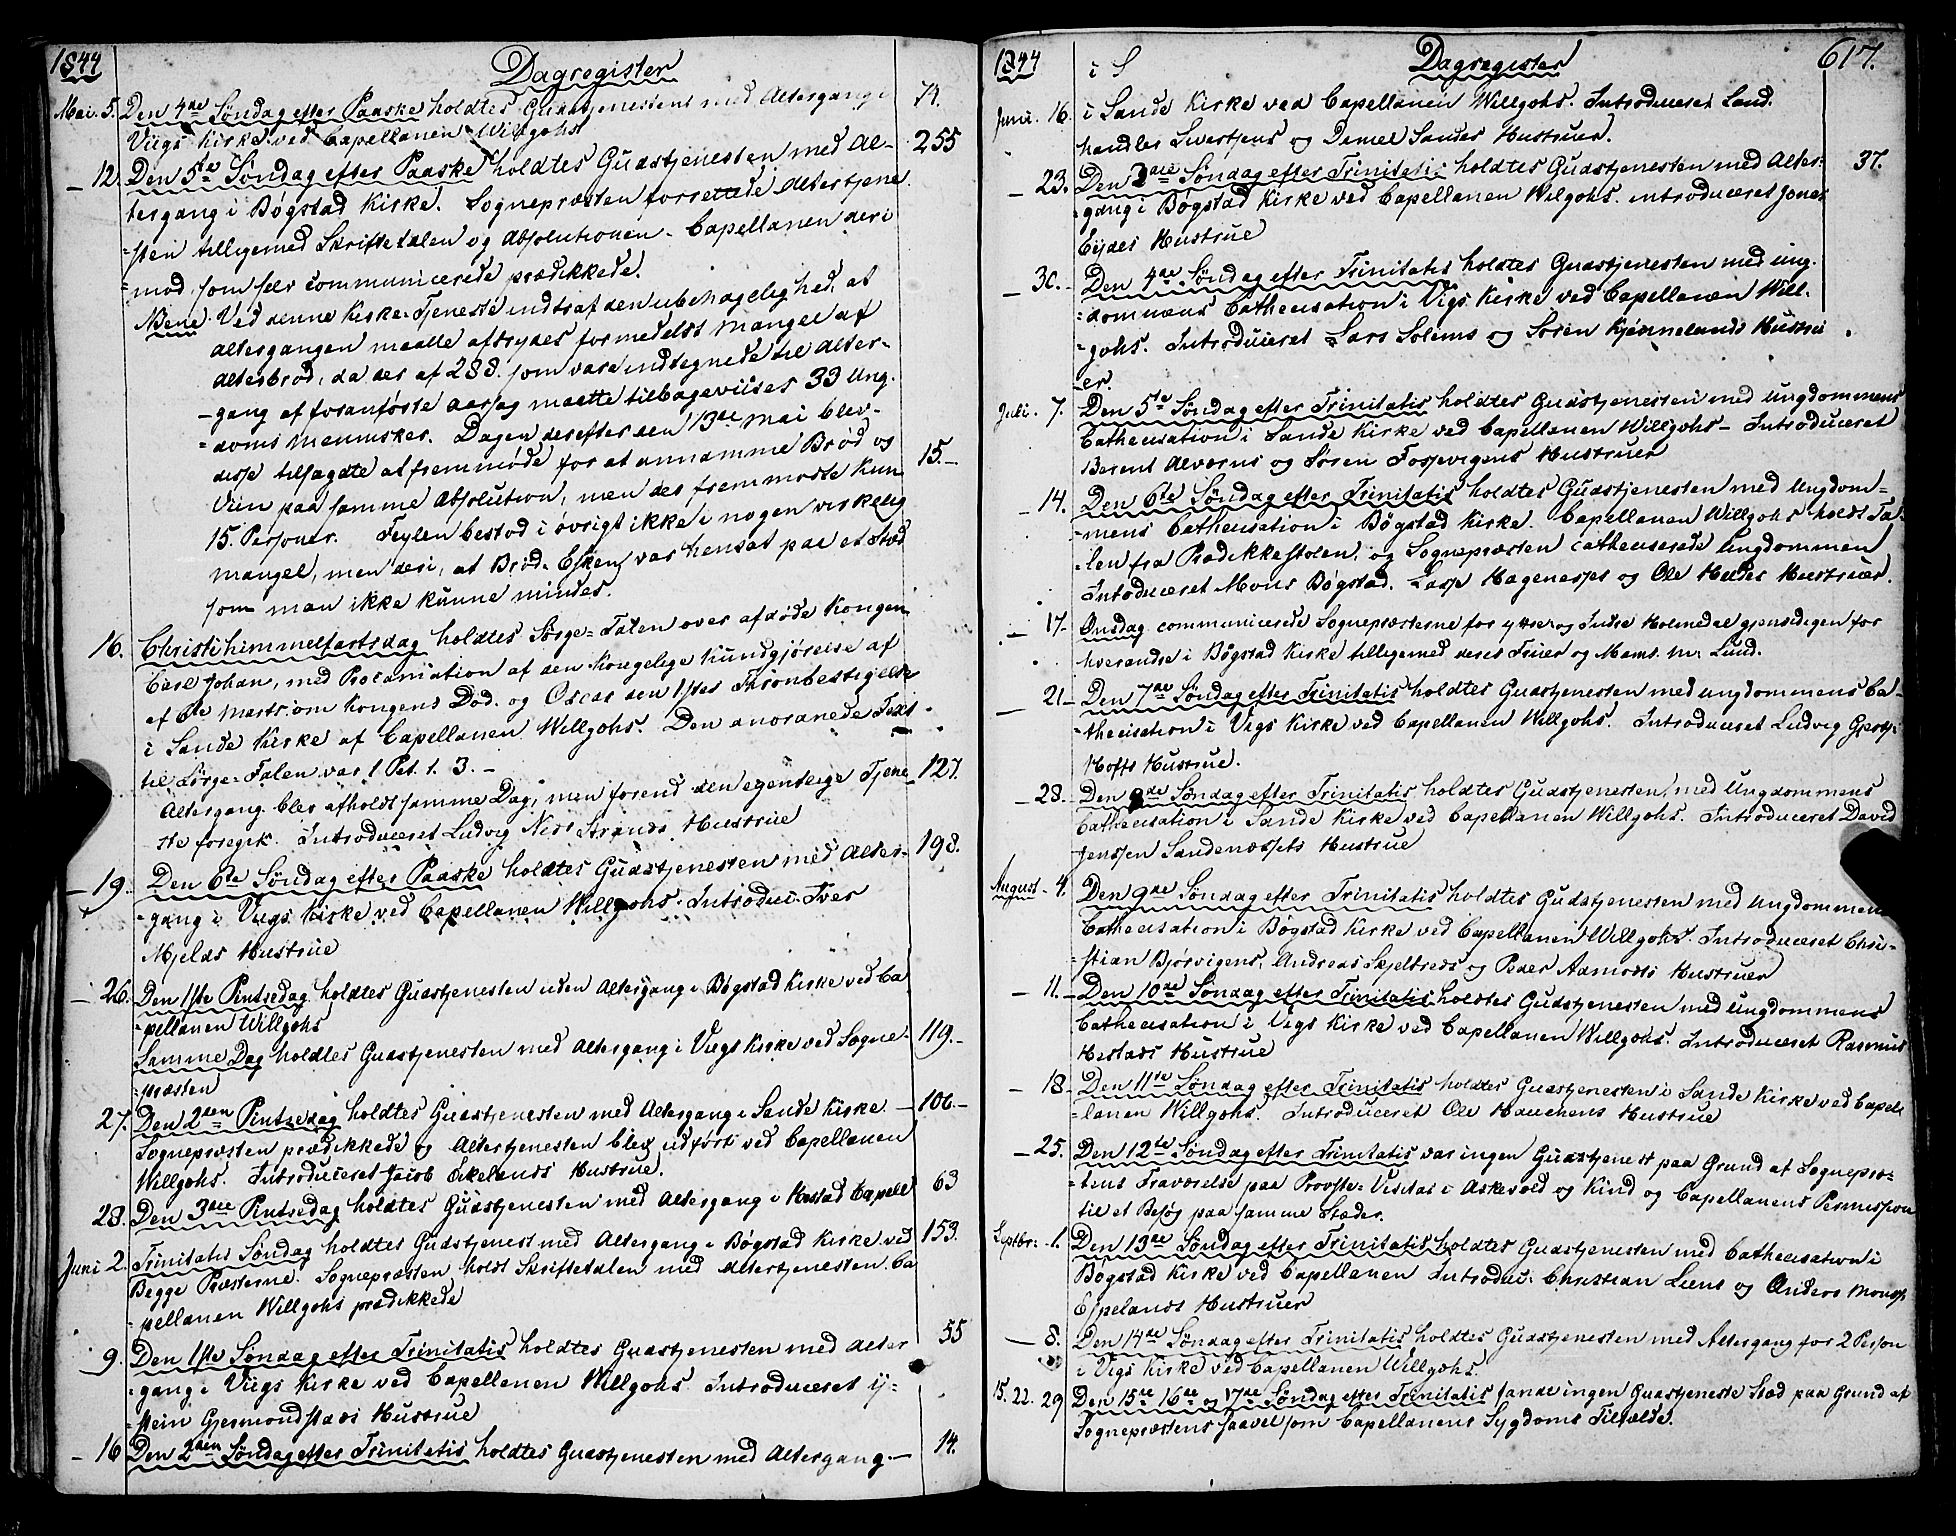 1844
Dagregister
Mai. 5. Den 4de Søndag efter Paaske holdtes Gudstjenesten med Altergang i 74.
Viigs Kirke ved Capellanen Willgohs
12. Den 5te Søndag efter Paaske holdtes Gudstjenesten med Al- 255
tergang i Bøgstad Kirke. Sognepræsten forrettede Altertjene
=sten tilligemed Skriftetalen og Absolutionen. Capellanen deri
=mod som selv communicerede prædikkede.
NBene Ved denne Kirke-Tjeneste indtraf den ubehagelighed, at
Altergangen maatte afbrydes formedelst Mangel af
Alterbrød, da der af 288. som vare indtegnede til Alter-
-gang af foranførte aarsag maatte tilbageviises 33 Ung-
=doms Mennesker. Dagen derefter den 13de Mai blev
disse tilsagdte at fremmøde for at annamme Brød og 15.-
Viin paa samme Absolution, men der fremmødte kun
15. Personer. Feylen bestod i øvrigt ikke i nogen virkelig
Mangel, men deri, at Brød-Esken var hensat paa et Sted
som man ikke kunne mindes.
16. Christi himmelfartsdag holdtes Sørge=Talen over afdøde Kongen
Carl Johan, med Proclamation af den Kongelige Kundgjørelse af
af 8de Marts om Kongens Død og Oscar den 1stes Thronbestigelse
i Sande Kirke af Capellanen Willgohs. Den anordnede Text
til Sørge-Talen var 1 Pet. 1. 3. -
Altergang blev afholdt samme Dag, men forend den egentlige Tjene 127.
ste foregik. Introduceret Ludvig Nedr Strands Hustrue
- 19. Den 6te Søndag efter Paaske holdtes Gudstjenesten med Alter- 198.
=gang i Viigs Kirke ved Capellanen Willgohs. Introduc: Iver
Mjelds Hustrue
- 26. Den 1ste Pintsedag holdtes Gudstjenesten uden Altergang i Bøgstad Kirke ved Ca
=pellanen Willgohs
Samme Dag holdtes Gudstjenesten med Altergang i Viigs Kirke ved Sogne- 119.-
=præsten
27. Den 2den Pintsedag holdtes Gudstjenesten med Altergang i Sande Kirke. - 106.-
Sognepræsten prædikkede og Altertjenesten blev udført ved Capellanen
Willgohs. Introduceret Jacob Eikelands Hustrue.
28. Den 3die Pintsedag holdtes Gudstjenesten med Altergang i Hestad Capell 63
Juni 2. Trinitatis Søndag holdtes Gudstjenest med Altergang i Bøgstad Kirke ved 153.
Begge Præsterne. Sognepræsten holdt Skriftetalen med Altertjenesten. Ca
=pellanen Willgohs prædikkede
9. Den 1ste Søndag efter Trinitatis holdtes Gudstjenesten med Alter 55
=gang i Viigs Kirke ved Capellanen Willgohs. Introduceret Ÿ=
=stein Gjermondstads Hustrue
- 16 Den 2den Søndag efter Trinitatis holdtes Gudstjenesten med Altergang.- 14.
1844
i S
Dagregister
617.
Juni. 16. i Sande Kirke ved Capellanen Willgohs. Introduceret Land.
handler Sivertsens og Daniel Sandes Hustruer.
- 23. Den 3die Søndag efter Trinitatis holdtes Gudstjenesten med Alter= 37.
=gang i Bøgstad Kirke ved Capellanen Wilgohs. introduceret Jonas
Eydes Hustrue
- 30.- Den 4de Søndag efter Trinitatis holdtes Gudstjenesten med ung-
=dommens Cathecisation i Vigs Kirke ved Capellanen Will-
=gohs. Introduceret Lars Solems og Søren Kjønnelands Hustru
er.
Juli. 7. Den 5te Søndag efter Trinitatis holdtes Gudstjenesten med ungdommens
Cathecisation i Sande Kirke ved Capellanen Willgohs- Introduceret
Berent Alværns og Søren Fossevigens Hustruer
- 14. Den 6te Søndag efter Trinitatis holdtes Gudstjenesten med Ungdom=
=mens Cathecisation i Bøgstad Kirke. Capellanen Willgohs holdt Ta-
=len fra Prædikkestolen, og Sognepræsten catheciserede Ungdommen
Introduceret Mons Bøgstad. Lasse Hagenesses og Ole Heldes Hustruer.
- 17- Onsdag communicerede Sognepræsterne for yttre og Indre Holmedal gjensidigen for
hverandre i Bøgstad Kirke tilligemed deres Fruer og Mams. M. Lund.
- 21- Den 7de Søndag efter Trinitatis holdtes Gudstjenesten med ungdommens Ca-
=thecisation i Vigs Kirke ved Capellanen Willgohs. Introduceret Ludvig Gjerts-
Hofts Hustrue.
- 28.- Den 8de Søndag efter Trinitatis holdtes Gudstjenesten med Ungdommens
Cathecisation i Sande Kirke ved Capellanen Willgohs. Introduceret David
Jenssen Sandenæssets Hustrue
August - 4. Den 9de Søndag efter Trinitatis holdtes Gudstjenesten med Ungdommens
Cathecisation i Bøgstad Kirke ved Capellanen Willgohs. Introduceret Chri-
=stian Bjørvigens, Andreas Skjelbreds og Peder Aamodts Hustruer
- 11.- Den 10de Søndag efter Trinitatis holdtes Gudstjenesten med Ungdommens
Cathecisation i Vigs Kirke ved Capellanen Willgohs. Introduceret Rasmus
Hestads Hustrue
- 18- Den 11te Søndag efter Trinitatis holdtes Gudstjenesten i Sande Kirke ved Capel-
=lanen Willgohs. Introduceret Ole Hauchens Hustrue
- 25. Den 12te Søndag efter Trinitatis var ingen Gudstjenest paa Grund af Sognepræ-
=stens Fraværelse paa Provste-Visitas i Askevold og Kind og Capellanens Permission
til et Besøg paa samme Stæder.
Septbr: -1. Den 13de Søndag efter Trinitatis holdtes Gudstjenesten med Cathecisation i
Bøgstad Kirke ved Capellanen Introduc: Christian Liens og Anders Monss.
Espelands Hustruer
- 8. Den 14de Søndag efter Trinitatis holdtes Gudstjenesten med Altergang for 2 Person
i Vigs Kirke ved Capellanen Willgohs.
15. 22. 29 Den 15de 16de og 17de Søndag efter Trinitatis fandt ingen Gudstjeneste Sted paa Grund af
Sognepræstens saavelsom Capellanens Sygdoms Tilfælde.